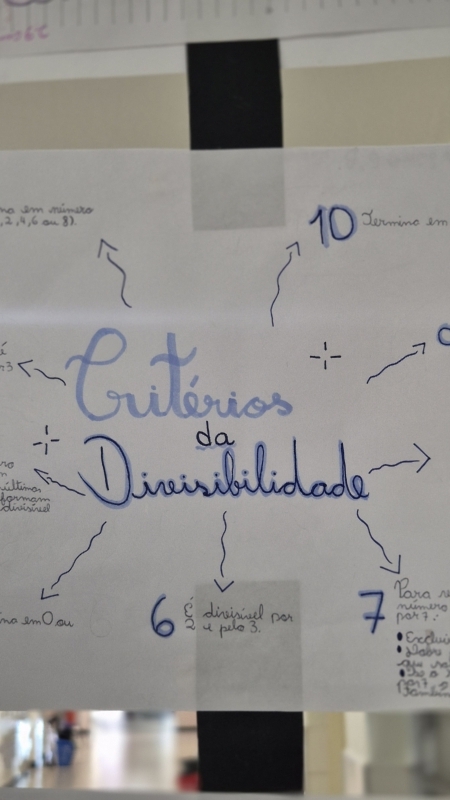 em número
2,4,6 ou 8).
10 Termina em
Critérios
da
Divisibilidade
últimos
formam
divisível
em 0 ou
6 É divisível por
2 e pelo 3.
7 Para
número
por 7:
• Exclui
• Dobre
que
• Se o
por 7, o
também